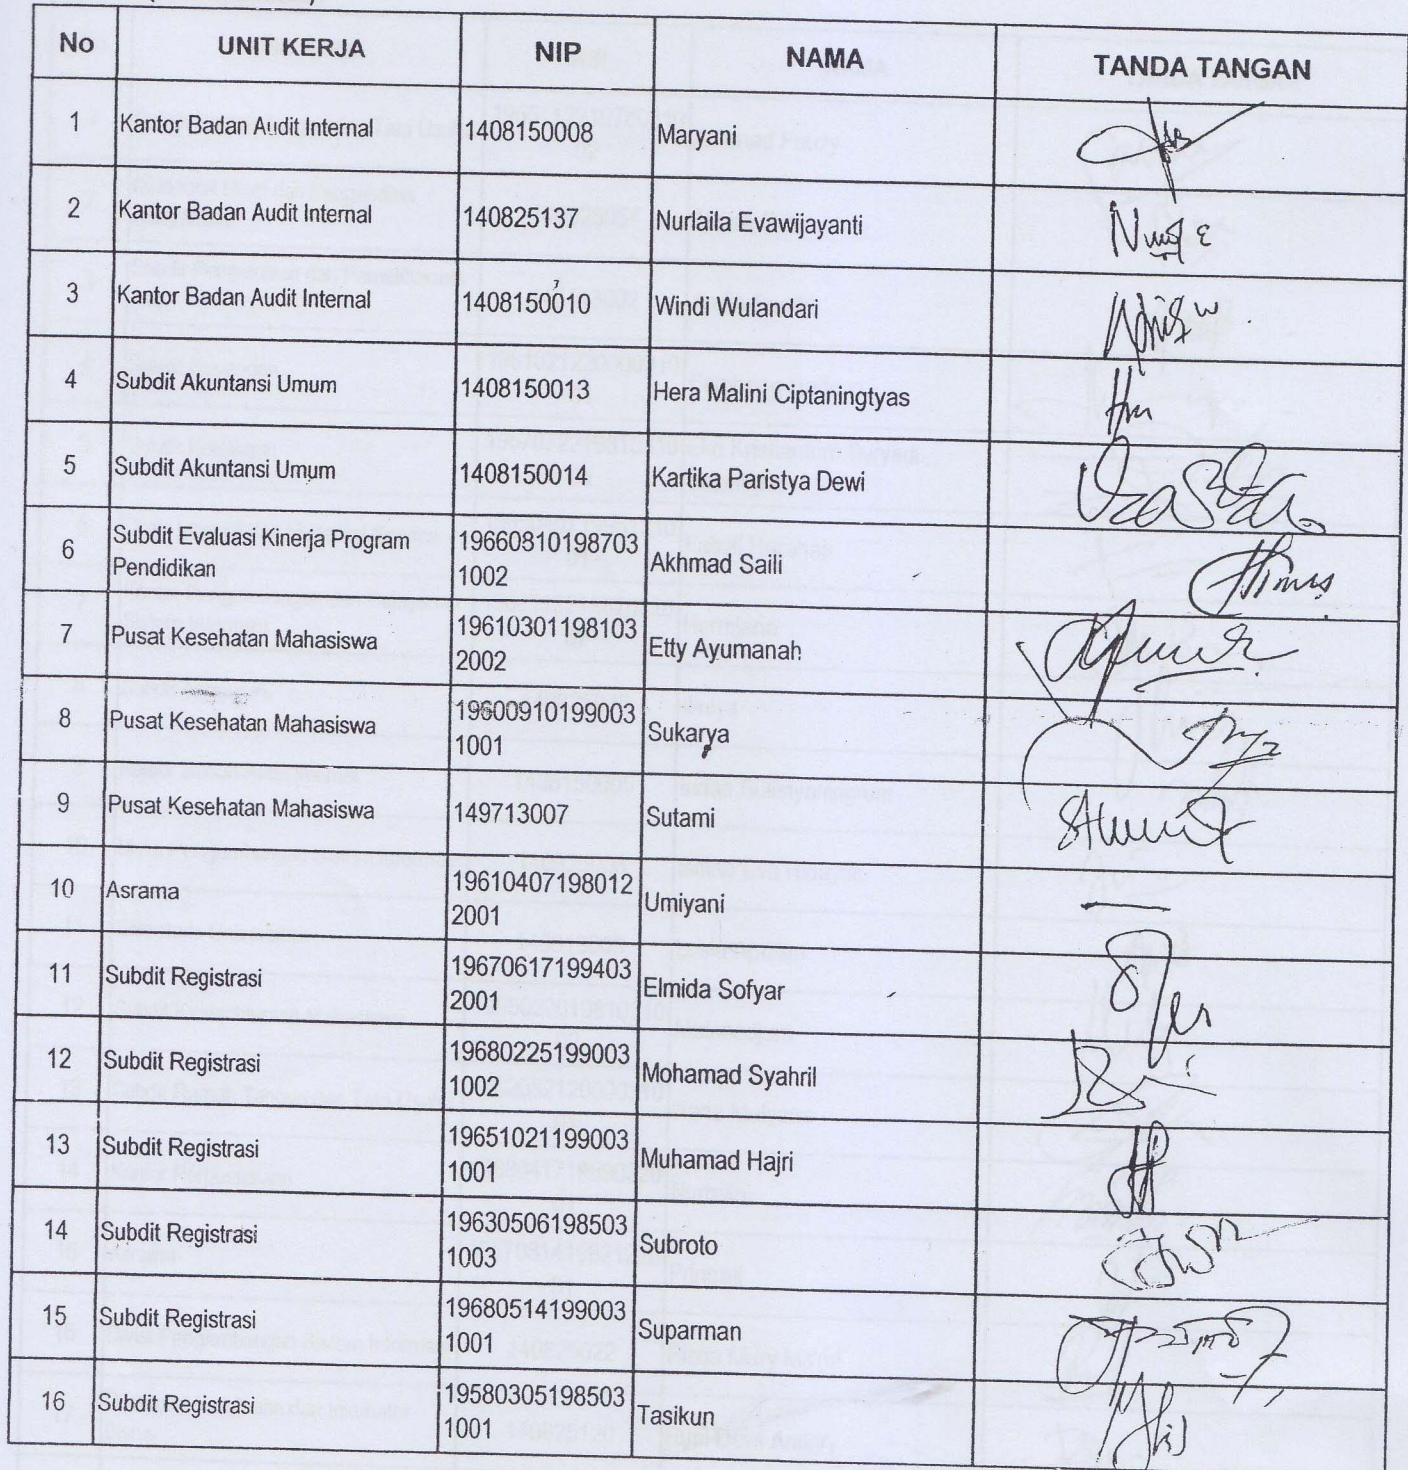 No UNIT KERJA NIP NAMA TANDA TANGAN
1 Kantor Badan Audit Internal 1408150008 Maryani
2 Kantor Badan Audit Internal 140825137 Nurlaila Evawijayanti
3 Kantor Badan Audit Internal 1408150010 Windi Wulandari
4 Subdit Akuntansi Umum 1408150013 Hera Malini Ciptaningtyas
5 Subdit Akuntansi Umum 1408150014 Kartika Paristya Dewi
6 Subdit Evaluasi Kinerja Program 19660810198703 Akhmad Saili
Pendidikan 1002
7 Pusat Kesehatan Mahasiswa 19610301198103 Etty Ayumanah
2002
8 Pusat Kesehatan Mahasiswa 19600910199003 Sukarya
1001
9 Pusat Kesehatan Mahasiswa 149713007 Sutami
10 Asrama 19610407198012 Umiyani
2001
11 Subdit Registrasi 19670617199403 Elmida Sofyar
2001
12 Subdit Registrasi 19680225199003 Mohamad Syahril
1002
13 Subdit Registrasi 19651021199003 Muhamad Hajri
1001
14 Subdit Registrasi 19630506198503 Subroto
1003
15 Subdit Registrasi 19680514199003 Suparman
1001
16 Subdit Registrasi 19580305198503 Tasikun
1001